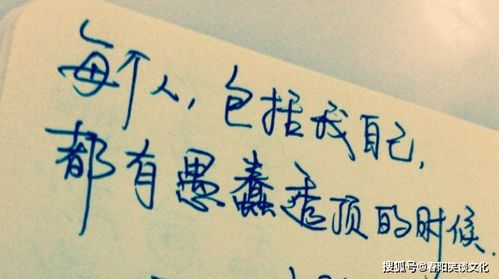 每个人，包括我自己，
都有愚蠢透顶的时候
搜狐号@春阳笑谈文化